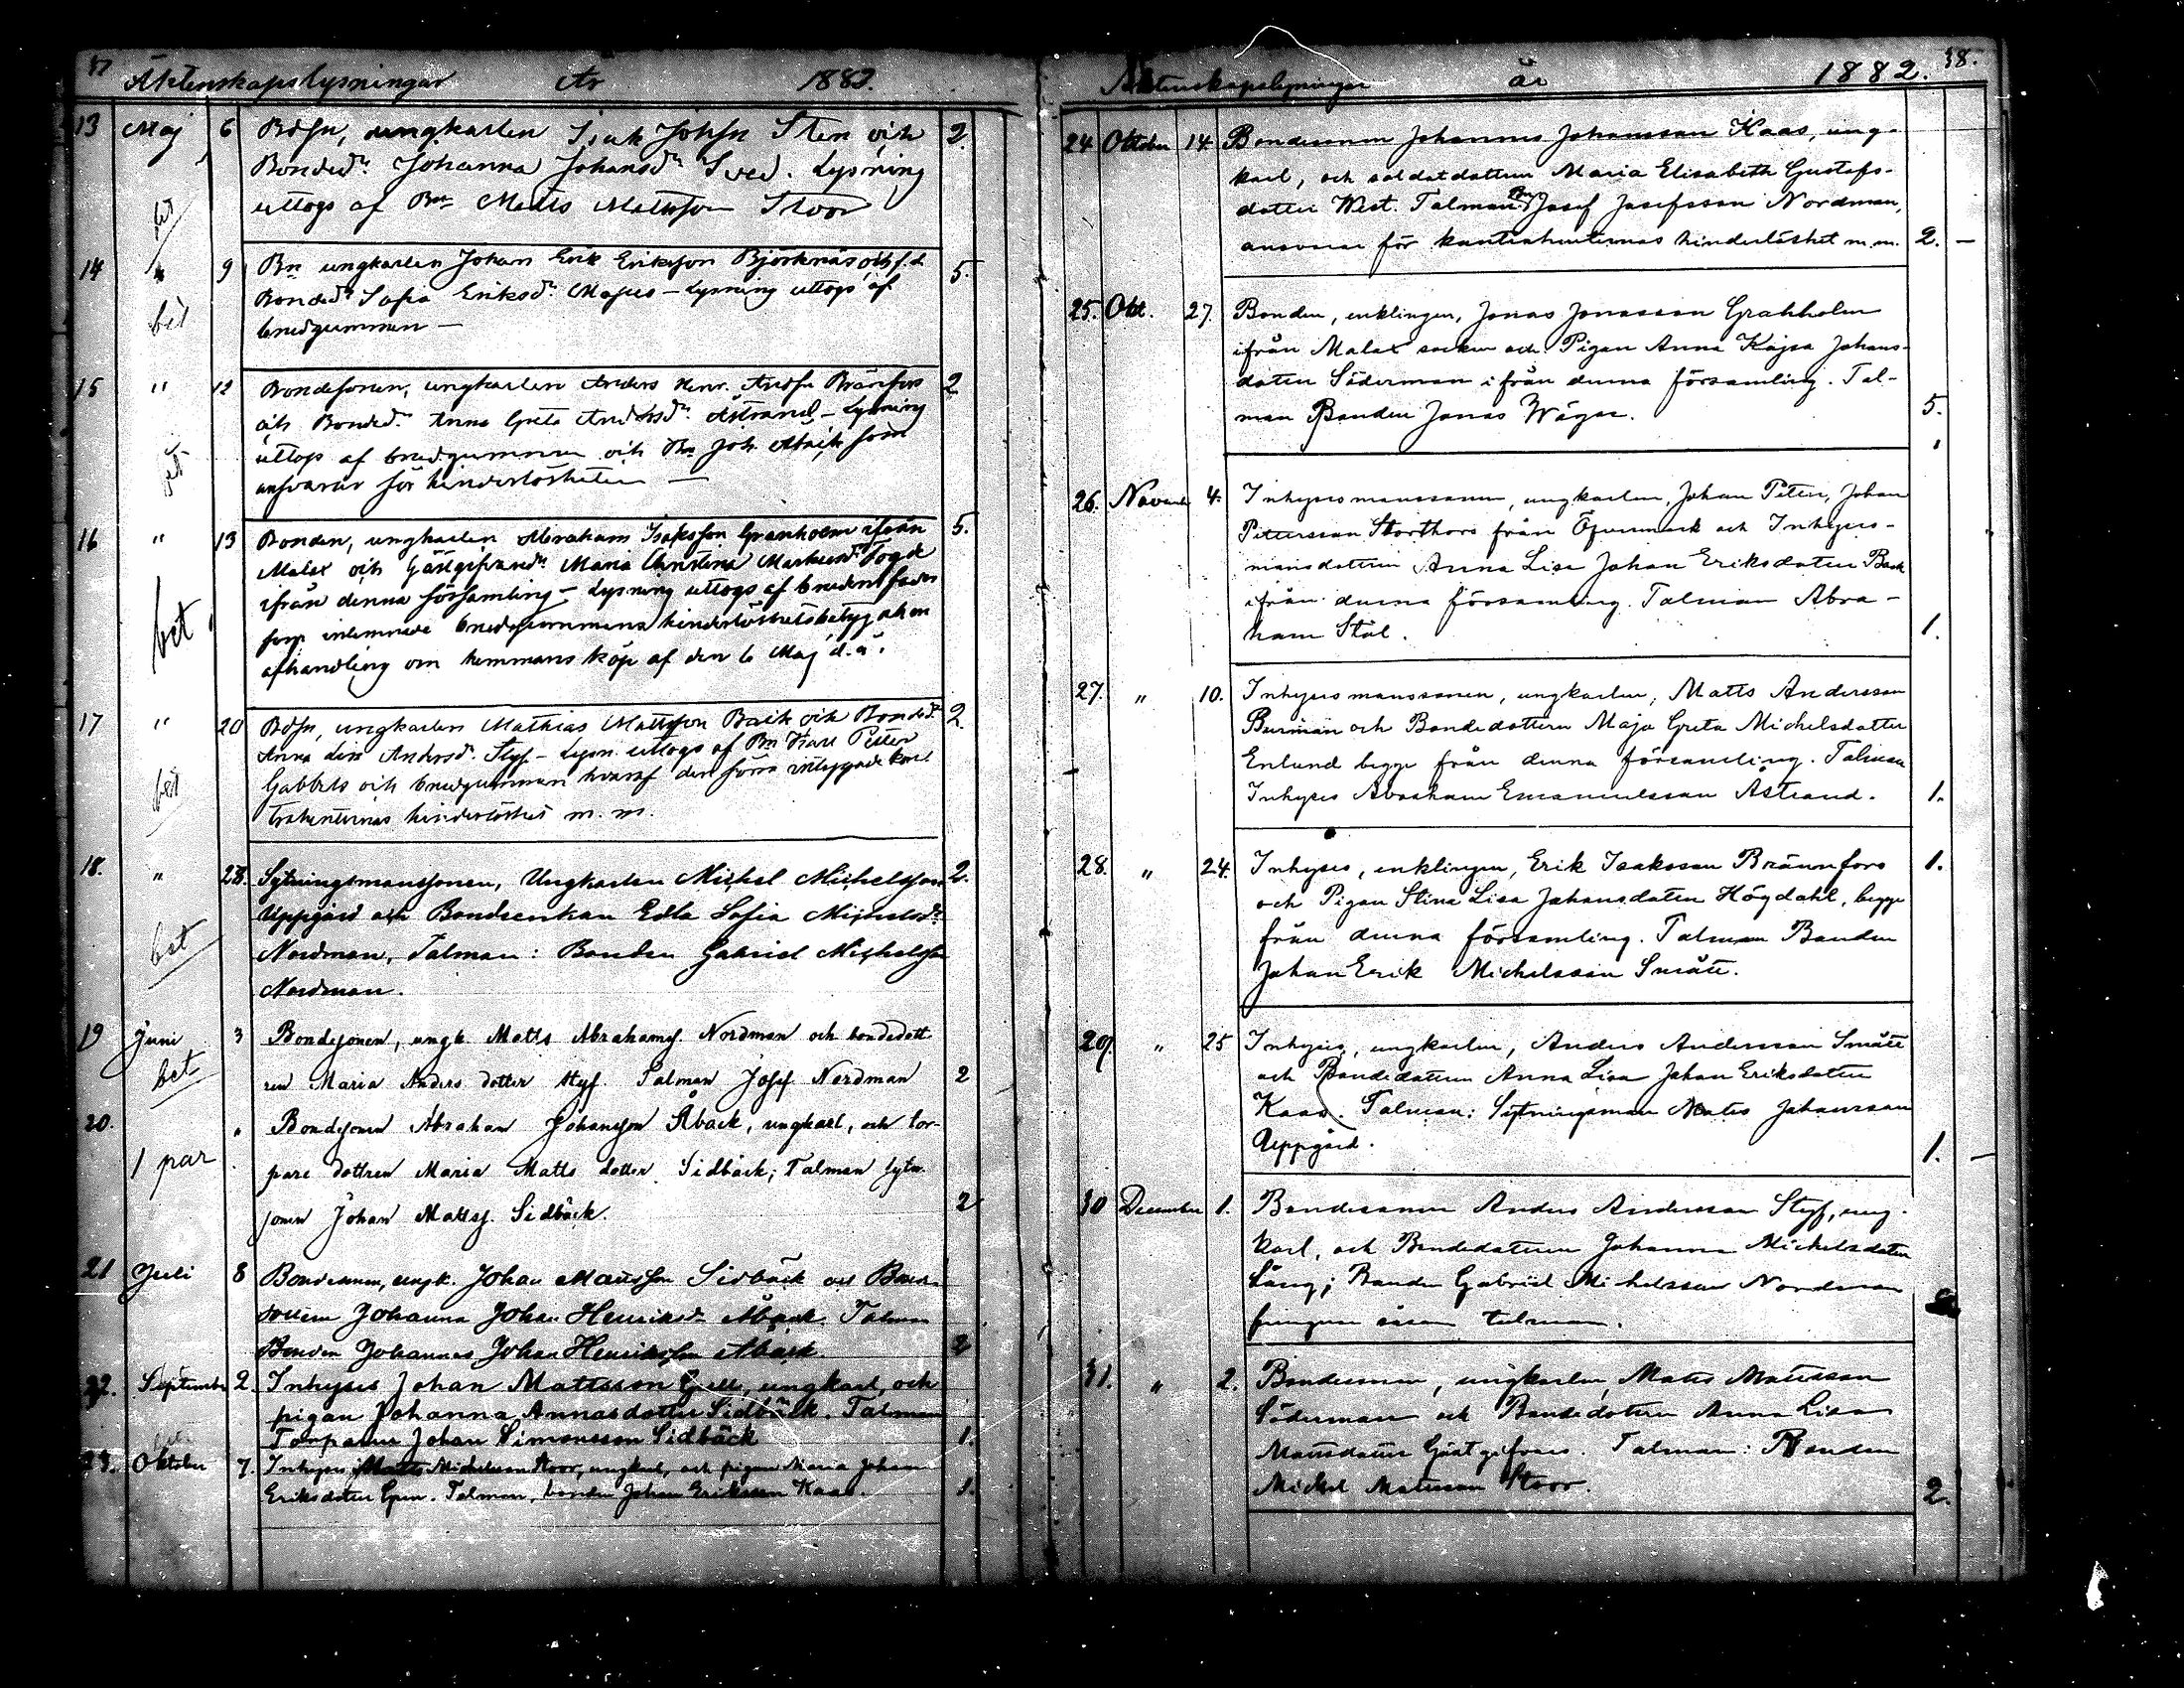 37
Äktenskapslysningar År 1882.
13 Maj 6 Bdsn, ungkarlen Isak Johsn Sten och 2
Bondedr. Johanna Johansdr Sved. Lysning
uttogs af Bn Matts Mattsson Stoor
bet
14 " 9 Bn ungkarlen Johan Erik Eriksson Björknäs och f.d.
Bondedr Sofia Eriksdr. - Lysning uttogs af 5.
brudgummen —
bet
15 " 12 Bondesonen, ungkarlen Anders Henr. Andsn Brännfors 2
och Bondedr. Anna Greta Andersdr. Åstrand - Lysning
uttogs af brudgummen och Bn Joh. Åbäck som
ansvarar för hinderlösheten —
bet
16 " 13 Bonden, ungkarlen Abraham Isaksson Granholm ifrån 5.
Malax och Gästgifvaredr. Maria Christina Markusdr. Fogde
ifrån denna församling - Lysning uttogs af brudens fader
som inlemnade brudgummens hinderlöshetsbetyg och en
afhandling om hemmans köp af den 6 Maj d.å.
bet
17 " 20 Bdsn, ungkarlen Mathias Mattsson Back och Bondedr 2
Anna Lisa Andersdr. Styf - Lysn. uttogs af Bn Karl Petter
Gabbels och brudgumman hvaraf den förra intygade kon-
trahenternas hinderlöshet m. m.
bet
18. " 28. Sytningsmanssonen, Ungkarlen Michel Michelsson 2.
Uppgård och Bondeenkan Edla Sofia Michelsdr.
Nordman, Talman: Bonden Gabriel Michelsson
Nordman.
bet
19 Juni 3 Bondesonen, ungk. Matts Abrahams. Nordman och bondedott
ren Maria Anders dotter Styf. Talman Josef Nordman 2
bet
20. " Bondesonen Abraham Johansson Åback, ungkarl, och tor-
pare dottren Maria Matts dotter Sidbäck; Talman sytn.
sonen Johan Mattss. Sidbäck. 2
1 par
21 Juli 8 Bondesonen, ungk. Johan Mattsson Sidbäck och Bonde
dottern Johanna Johan Henriksdr Åback. Talman
Bonden Johannes Johan Henriksson Åback. 2
22. September 2 Inhyses Johan Mattsson Gell, ungkarl, och
pigan Johanna Annasdotter Sidbäck. Talman
Torparen Johan Simonsson Sidbäck 1.
23. Oktober 7. Inhyses Matts Michelsson Stoor, ungkarl, och pigan Maria Johan
Eriksdotter Gren. Talman, bonden Johan Eriksson Kaas. 1.
38.
Äktenskapslysningar år 1882.
24 Oktober 14 Bondesonen Johannes Johansson Kaas, ung-
karl, och soldatdottern Maria Elisabeth Gustafs-
dotter West. Talman Bn Josef Josefsson Nordman,
ansvarar för kontrahenternas hinderlöshet m.m. 2. —
25. Okt. 27. Bonden, enklingen, Jonas Jonasson Grahholm
ifrån Malax socken och Pigan Anna Kajsa Johans-
dotter Söderman ifrån denna församling. Tal-
man Bonden Jonas Wägar. 5.
26. November 4. Inhysesmanssonen, ungkarlen, Johan Petter, Johan
Pettersson Storthors från Öfvermark och Inhyses-
mansdottern Anna Lisa Johan Eriksdotter Back
ifrån denna församling. Talman Abra-
ham Stål. 1.
27. " 10. Inhysesmanssonen, ungkarlen, Matts Andersson
Burman och Bondedottern Maja Greta Michelsdotter
Enlund begge från denna församling. Talman
Inhyses Abraham Emanuelsson Åstrand. 1.
28. " 24. Inhyses, enklingen, Erik Isaksson Brännfors 1.
och Pigan Stina Lisa Johansdotter Högdahl, begge
från denna församling. Talman Bonden
Johan Erik Michelsson Smått.
29. " 25 Inhyses, ungkarlen, Anders Andersson Smått
och Bondedottern Anna Lisa Johan Eriksdotter
Kaas. Talman: Sytningsman Matts Johansson
Uppgård. 1. —
30 December 1. Bondesonen Anders Andersson Styf, ung-
karl, och Bondedottern Johanna Michelsdotter
Lång; Bonden Gabriel Michelsson Nordman
fungerar såsom talman.
31. " 2. Bondesonen, ungkarlen Matts Mattsson
Söderman och Bondedottern Anna Lisa
Mattsdotter Gästgifvars. Talman: Bonden
Michel Mattsson Stoor. 2.